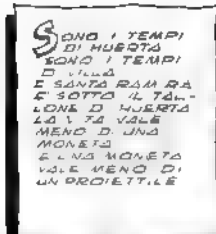 SONO I TEMPI
DI HUERTA
SONO I TEMPI
DI VILLA
E SANTA RAM RA
E' SOTTO IL TAL-
LONE DI HUERTA
LA VITA VALE
MENO DI UNA
MONETA
E UNA MONETA
VALE MENO DI
UN PROIETTILE